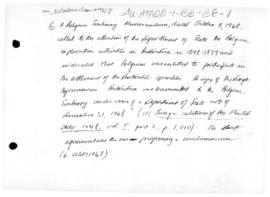 AU-ATADD-1-BB-BE-1
6 A Belgian Embassy Memorandum, dated October 8, 1948,
called to the attention of the Department of State the Belgian
exploration activities in Antarctica in 1898-1899 and
indicated that Belgium was entitled to participate in
the settlement of the Antarctic question. A copy of
Antarctica was transmitted to the Belgian
Embassy under cover of a Department of State note of
December 21, 1948 (US Foreign relations of the United
States 1948, vol. I, part 2, p. 1,010) The
agreement was the one proposing a condominium
1948)